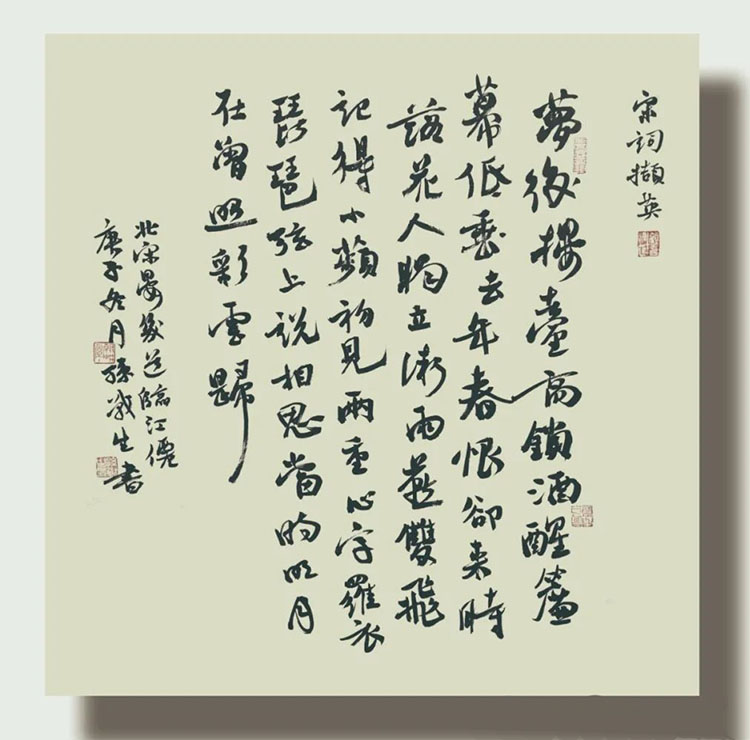 宋词撷英
夢後樓臺高鎖酒醒簾
幕低垂去年春恨卻来時
落花人獨立微雨燕雙飛
記得小蘋初見兩重心字羅衣
琵琶弦上説相思當時明月
在曾照彩雲歸
北宋晏幾道臨江僊
庚子冬月孫戰生書